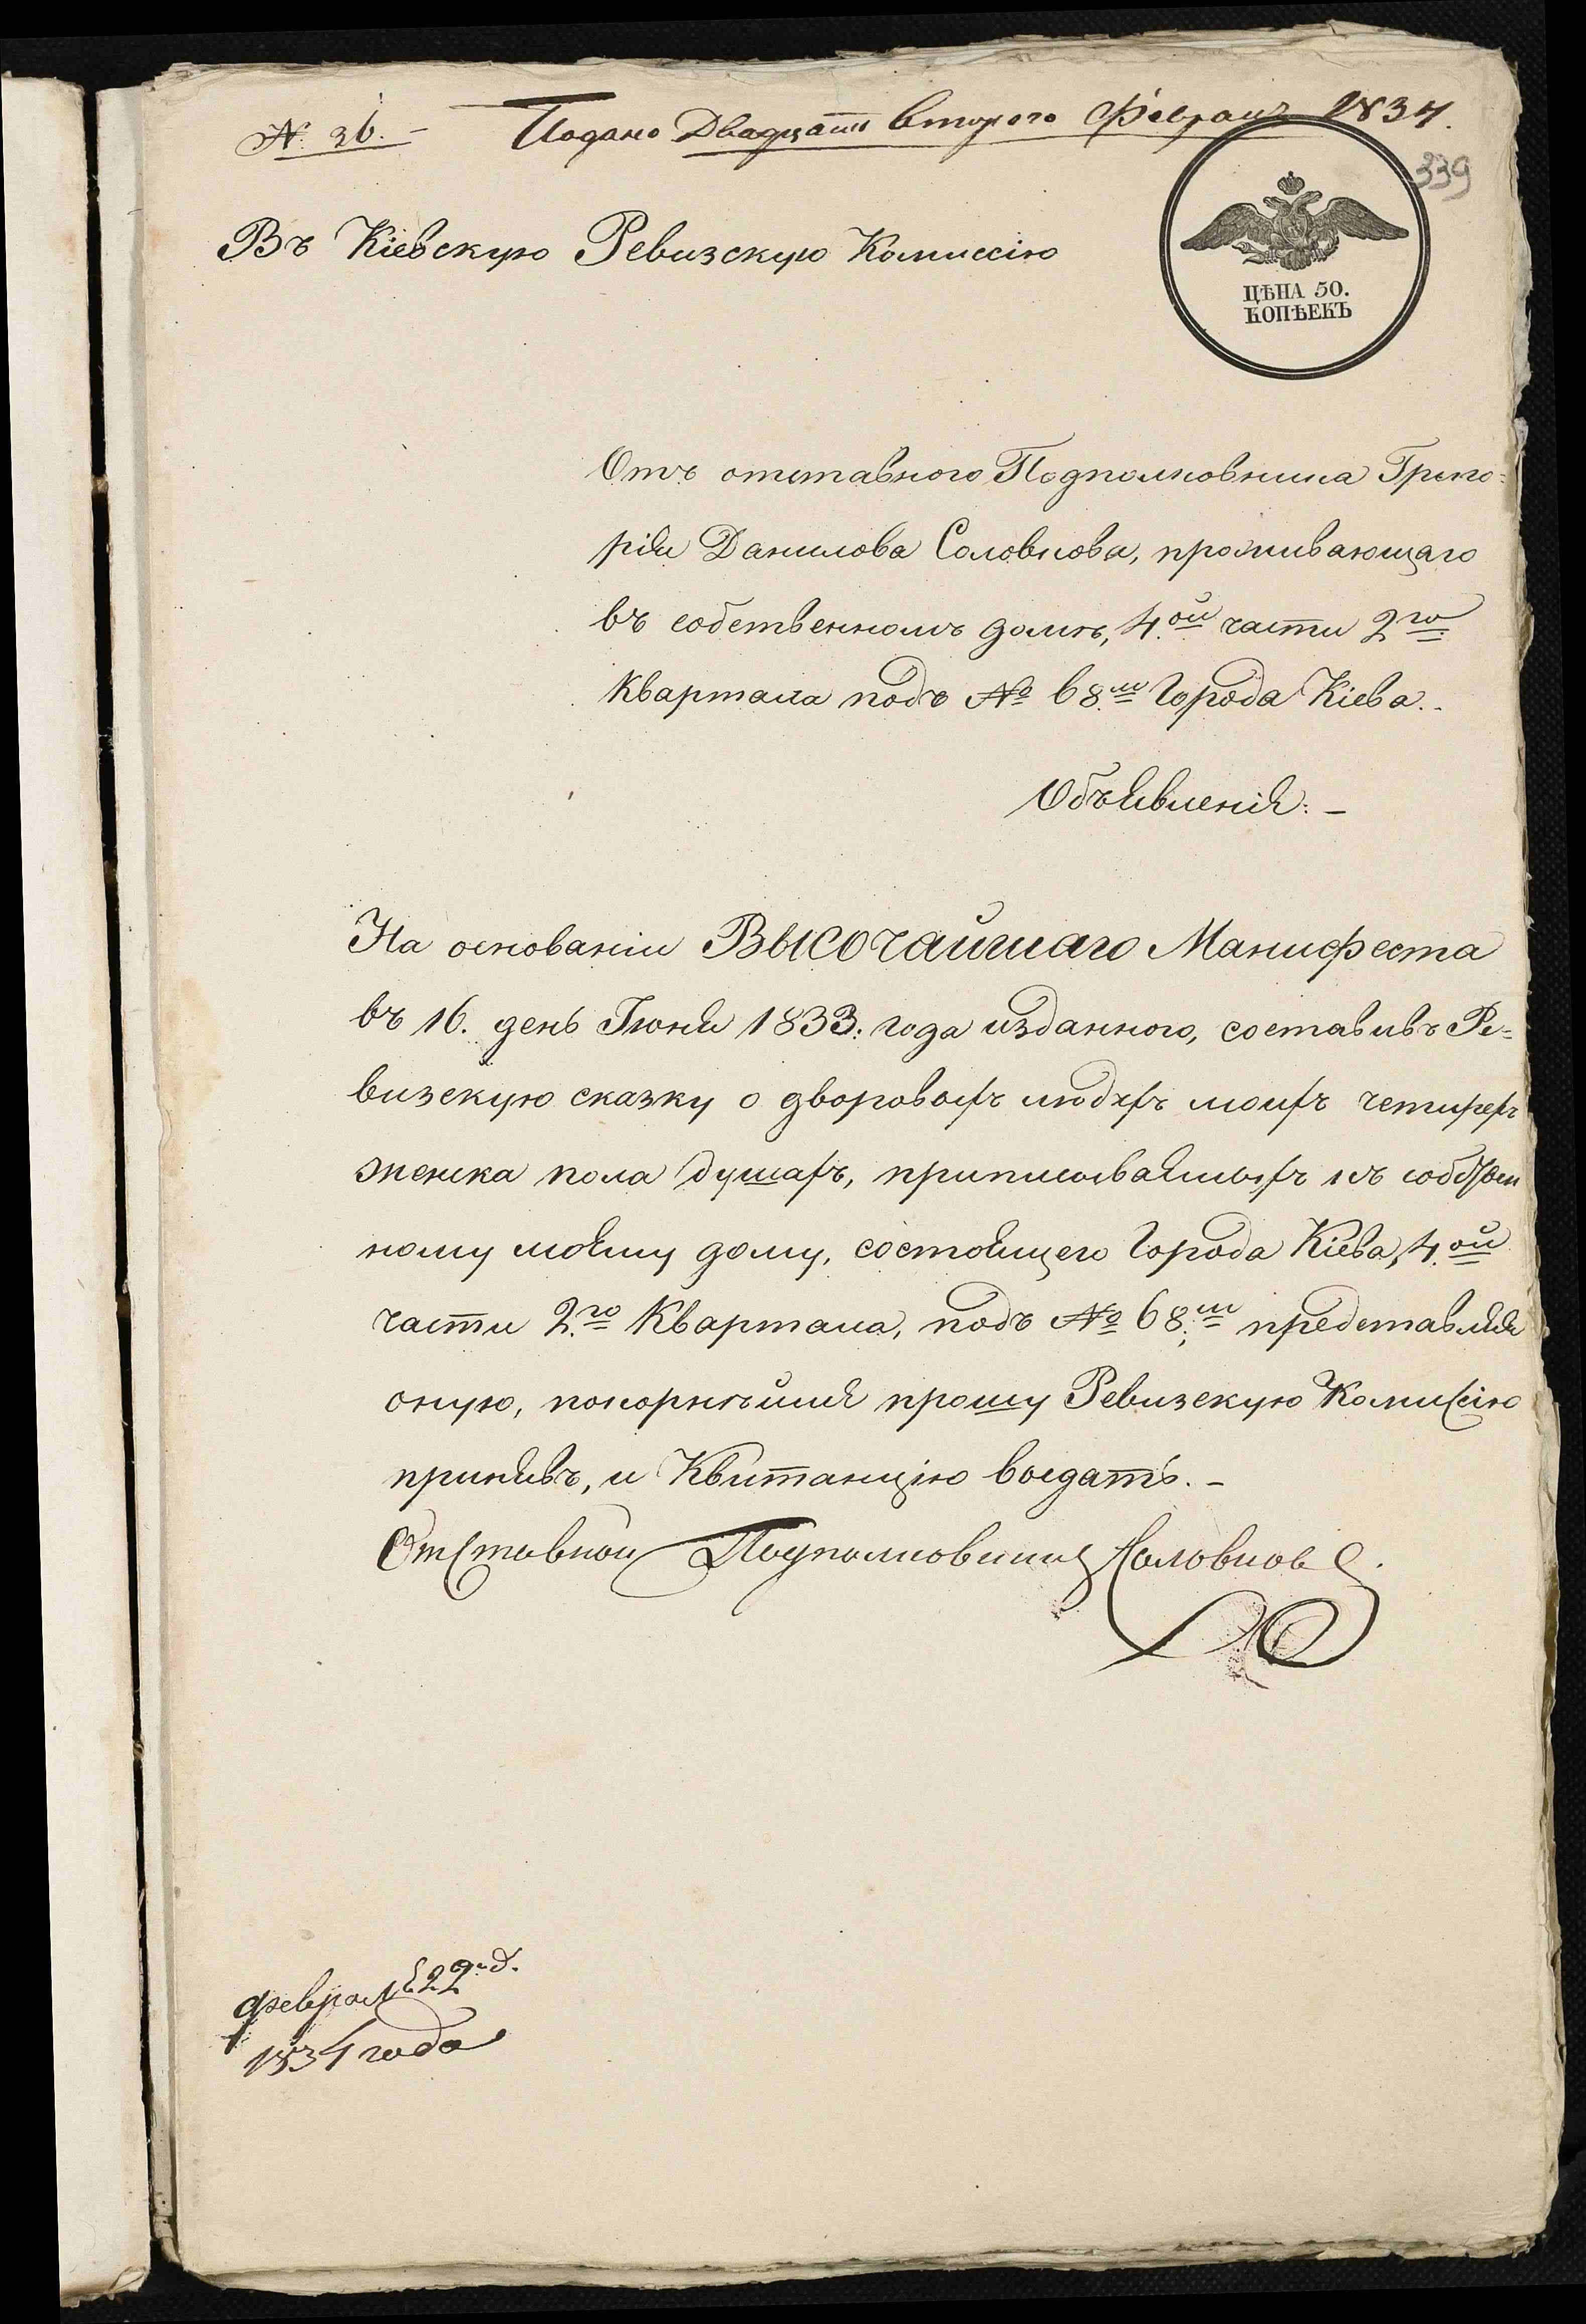 № 36. – Подано Двадцать втораго Февраля 1834.
339
ЦѢНА 50.
КОПѢЕКЪ
Въ Кіевскую Ревизскую Комиссію
Отъ отставнаго Подполковника Григо=
рія Данилова Соловкова, проживающаго
въ собственномъ домѣ, 4.ой части 2го
Квартала подъ № 68.мъ Города Кіева.
Объявленіе:–
На основаніи Высочайшаго Манифеста
въ 16. день Іюня 1833: года изданного, составивъ Ре=
визскую сказку о дворовыхъ людяхъ моихъ четырехъ
женска пола душахъ, приписываемыхъ къ собствен
ному моему дому, состоящего Города Кіева, 4.ой
части 2.го Квартала, подъ № 68;мъ представляя
оную, покорнѣйше прошу Ревизскую Комиссію
принявъ, и Квитанцію выдать.–
Отставной Подполковникъ Соловковъ.
февраля 22 д.
1834 года